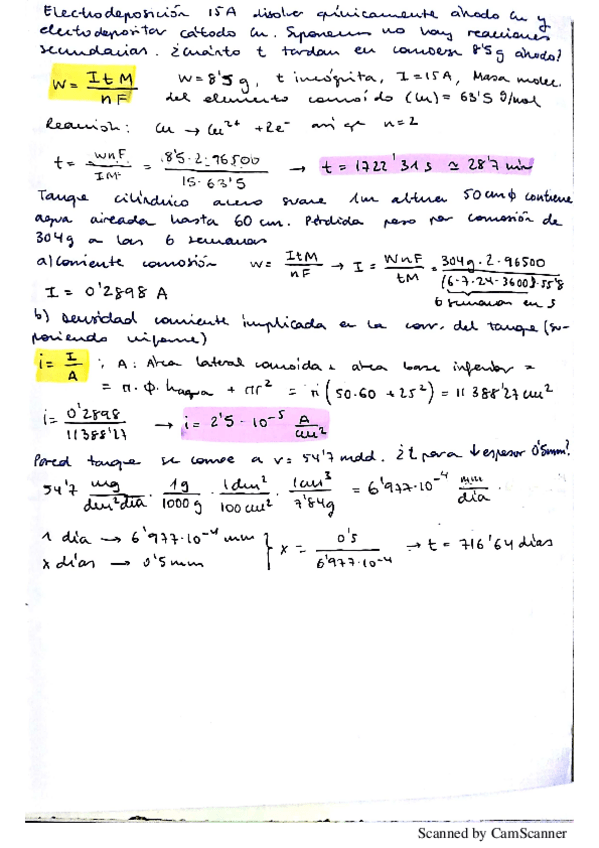 Electrodeposición 15A disolver químicamente ánodo Cu y
electrodepositar cátodo Cu. Suponemos no hay reacciones
secundarias. ¿Cuánto t tardan en corroerse 8'5g ánodo?
W = ItM / nF W = 8'5 g, t incógnita, I = 15A, Masa molec.
del elemento corroído (Cu) = 63'5 g/mol
Reacción: Cu → Cu²⁺ + 2e⁻ así que n = 2
t = WnF / IM = 8'5·2·96500 / 15·63'5 → t = 1722'31 s ≃ 28'7 min
Tanque cilíndrico acero suave 1m altura 50 cm ϕ contiene
agua aireada hasta 60 cm. Pérdida peso por corrosión de
304g a las 6 semanas
a) corriente corrosión W = ItM / nF → I = WnF / tM = 304g·2·96500 / (6·7·24·3600)·55'8
I = 0'2898 A 6 semanas en s
b) Densidad corriente implicada en la corr. del tanque (su-
poniendo uniforme)
i = I / A ; A: Área lateral corroída + área base inferior =
= π·ϕ·hagua + πr² = π(50·60 + 25²) = 11388'27 cm²
i = 0'2898 / 11388'27 → i = 2'5·10⁻⁵ A / cm²
Pared tanque se corroe a v = 54'7 mdd. ¿t para ↓ espesor 0'5mm?
54'7 mg / dm² día · 1g / 1000 g · 1dm² / 100 cm² · 1cm³ / 7'84g = 6'977·10⁻⁴ mm / día.
1 día → 6'977·10⁻⁴ mm } x = 0'5 / 6'977·10⁻⁴ → t = 716'64 días
x días → 0'5 mm
Scanned by CamScanner